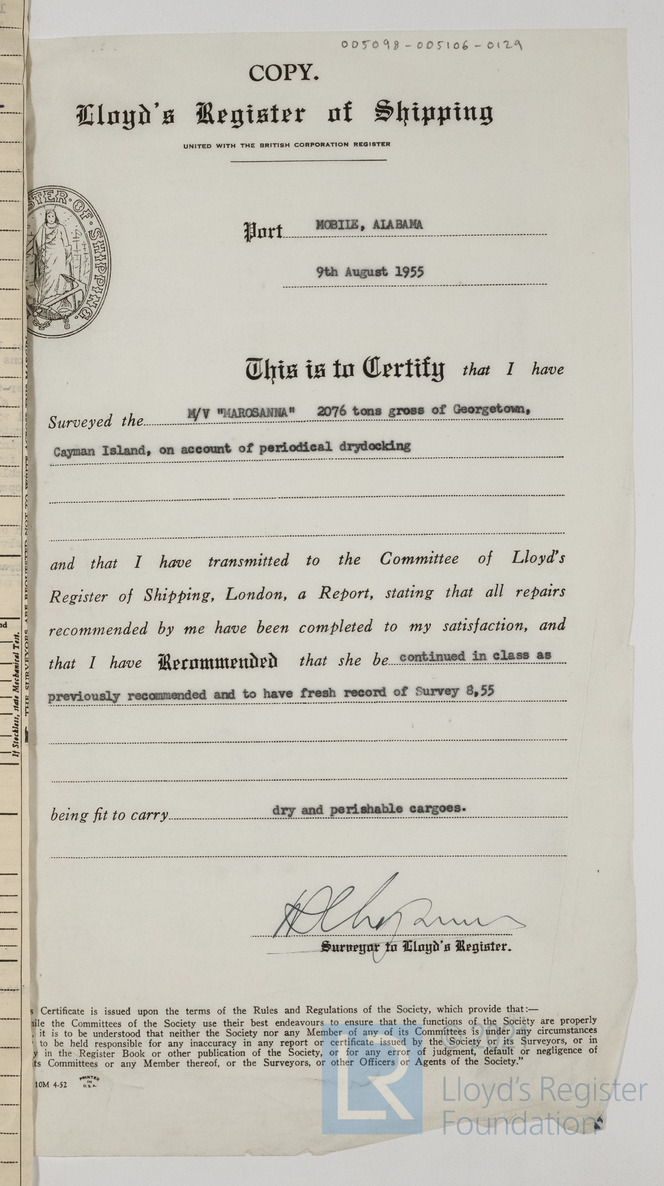 005098-005106-0129
COPY.
Lloyd's Register of Shipping
UNITED WITH THE BRITISH CORPORATION REGISTER
STER·OF·SHIPPING.
Port MOBILE, ALABAMA
9th August 1955
This is to Certify that I have
Surveyed the M/V "MAROSANNA" 2076 tons gross of Georgetown,
Cayman Island, on account of periodical drydocking
and that I have transmitted to the Committee of Lloyd's
Register of Shipping, London, a Report, stating that all repairs
recommended by me have been completed to my satisfaction, and
that I have Recommended that she be continued in class as
previously recommended and to have fresh record of Survey 8,55
being fit to carry dry and perishable cargoes.
Surveyor to Lloyd's Register.
Certificate is issued upon the terms of the Rules and Regulations of the Society, which provide that:—
ile the Committees of the Society use their best endeavours to ensure that the functions of the Society are properly
it is to be understood that neither the Society nor any Member of any of its Committees is under any circumstances
to be held responsible for any inaccuracy in any report or certificate issued by the Society or its Surveyors, or in
in the Register Book or other publication of the Society, or for any error of judgment, default or negligence of
ts Committees or any Member thereof, or the Surveyors, or other Officers or Agents of the Society."
10M 4-52 PRINTED IN U.S.A.
THE SURVEYORS ARE REQUESTED NOT TO WRITE
If Stockless, state Mechanical Test.
LR
Lloyd's Register
Foundation